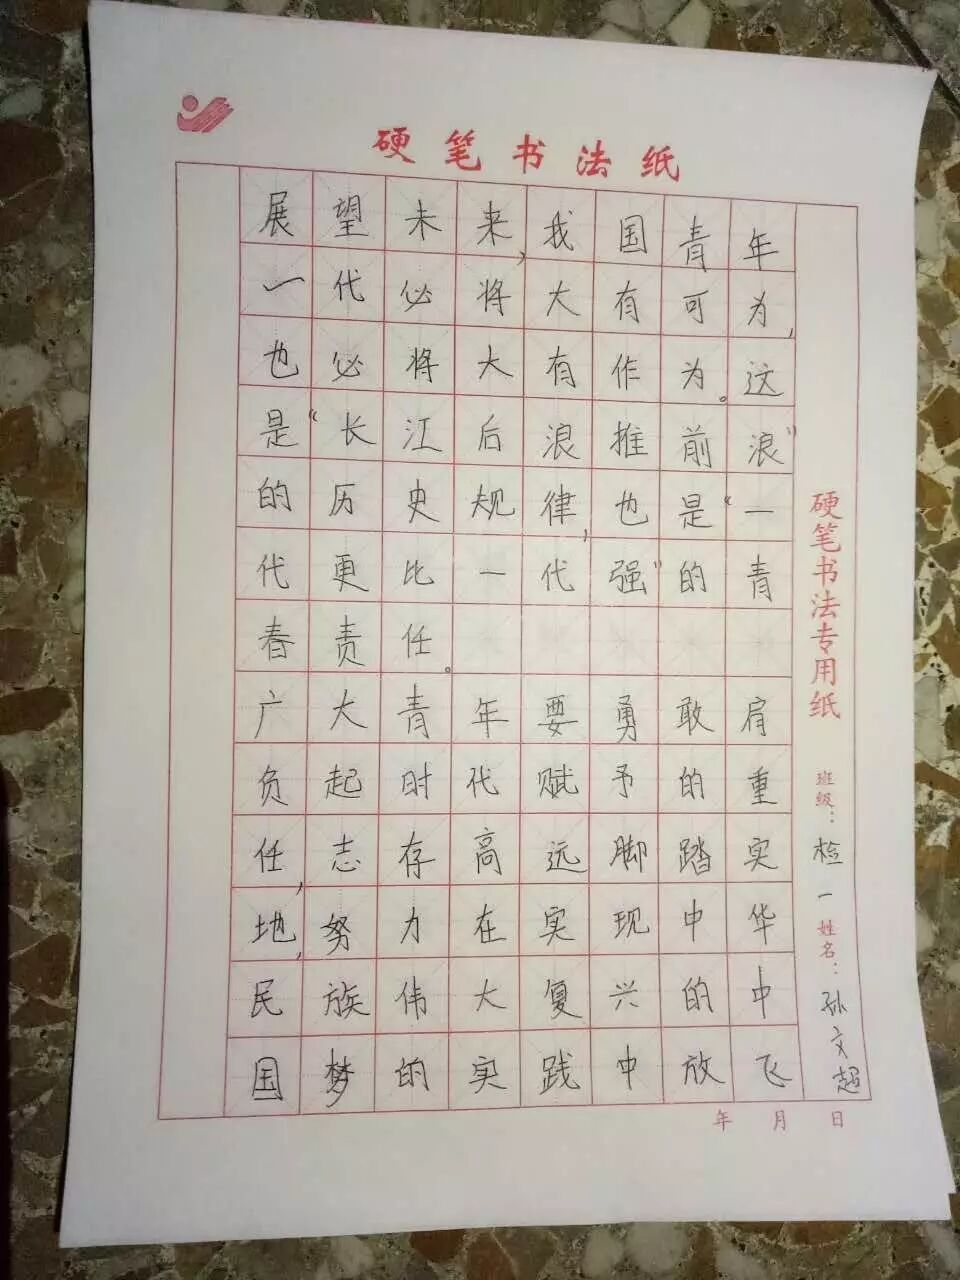 硬笔书法纸
展望未来,我国青年
一代必将大有可为,
也必将大有作为。这
是“长江后浪推前浪”
的历史规律,也是“一
代更比一代强”的青
春责任。
广大青年要勇敢肩
负起时代赋予的重
任,志存高远脚踏实
地,努力在实现中华
民族伟大复兴的中
国梦的实践中放飞
硬笔书法专用纸
班级:检一
姓名:孙文超
年 月 日